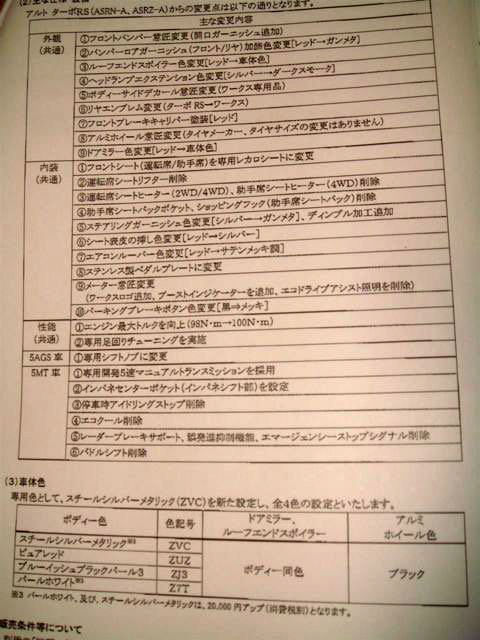 (2)主な仕様・装備
アルト ターボRS(ASRN-A、ASRZ-A)からの変更点は以下の通りとなります。
主な変更内容
外観
(共通)
①フロントバンパー意匠変更(開口ガーニッシュ追加)
②バンパーロアガーニッシュ(フロント/リヤ)加飾色変更[レッド→ガンメタ]
③ルーフエンドスポイラー色変更[レッド→車体色]
④ヘッドランプエクステンション色変更[シルバー→ダークスモーク]
⑤ボディーサイドデカール意匠変更(ワークス専用品)
⑥リヤエンブレム変更(ターボRS→ワークス)
⑦フロントブレーキキャリパー塗装[レッド]
⑧アルミホイール意匠変更(タイヤメーカー、タイヤサイズの変更はありません)
⑨ドアミラー色変更[レッド→車体色]
内装
(共通)
①フロントシート(運転席/助手席)を専用レカロシートに変更
②運転席シートリフター削除
③運転席シートヒーター(2WD/4WD)、助手席シートヒーター(4WD)削除
④助手席シートバックポケット、ショッピングフック(助手席シートバック)削除
⑤ステアリングガーニッシュ色変更[シルバー→ガンメタ]、ディンプル加工追加
⑥シート表皮の挿し色変更[レッド→シルバー]
⑦エアコンルーバー色変更[レッド→サテンメッキ調]
⑧ステンレス製ペダルプレートに変更
⑨メーター意匠変更
(ワークスロゴ追加、ブーストインジケーターを追加、エコドライブアシスト照明を削除)
⑩パーキングブレーキボタン色変更[黒⇒メッキ]
性能
(共通)
①エンジン最大トルクを向上(98N・m→100N・m)
②専用足回りチューニングを実施
5AGS車
①専用シフトノブに変更
5MT車
①専用開発5速マニュアルトランスミッションを採用
②インパネセンターポケット(インパネシフト部)を設定
③停車時アイドリングストップ削除
④エコクール削除
⑤レーダーブレーキサポート、誤発進抑制機能、エマージェンシーストップシグナル削除
⑥パドルシフト削除
(3)車体色
専用色として、スチールシルバーメタリック(ZVC)を新た設定し、全4色の設定といたします。
ボディー色
色記号
ドアミラー、
ルーフエンドスポイラー
アルミ
ホイール色
スチールシルバーメタリック※3
ZVC
ピュアレッド
ZUZ
ブルーイッシュブラックパール3
ZJ3
パールホワイト※3
Z7T
ボディー同色
ブラック
※3 パールホワイト、及び、スチールシルバーメタリックは、20,000円アップ(消費税別)となります。
販売条件等について